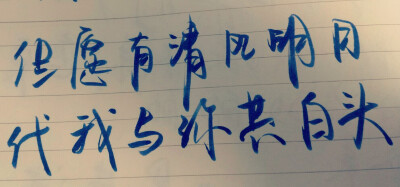 但愿有清风明月
代我与你共白头